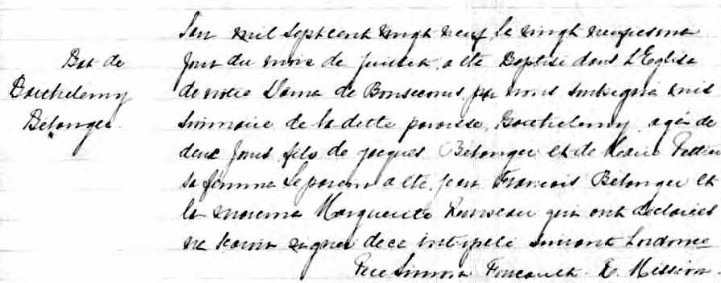 Bat de
Barthelemy
Belanger
Lan mil sept cent vingt neuf le vingt neufiesme
jour du mois de juillet a ete Baptisé dans L'Eglise
de notre Dame de Bonsecours par nous soubsigné mis
sionnaire de la dette paroisse, Barthelemy agé de
deux jours fils de jacques Belanger et de Marie
sa femme Le parein a ete jean Francois Belanger et
la mareine Marguerite qui ont declarés
ne scavoir signer de ce interpelé suivant Lordonce
Pere Simon Foucault P. Mission